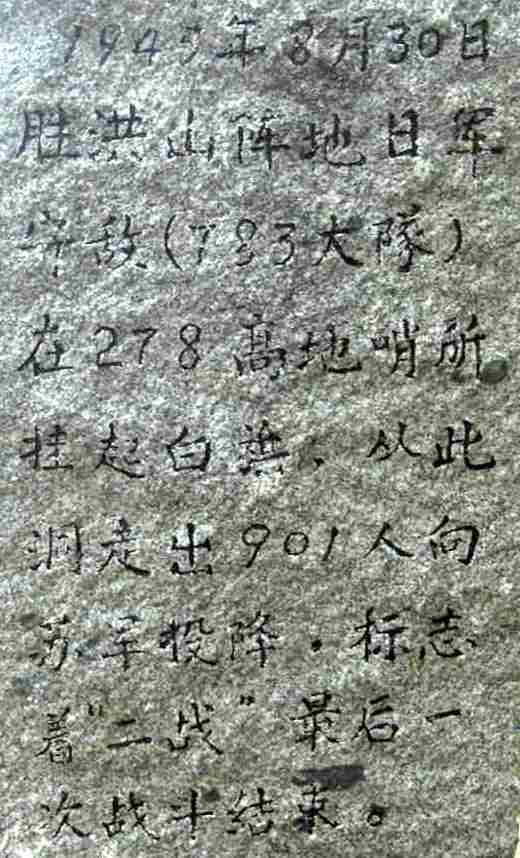 1945年8月30日
胜洪山阵地日军
守敌(783大隊)
在278高地哨所
挂起白旗,从此
洞走出901人向
苏军投降,标志
着“二战”最后一
次战斗结束。